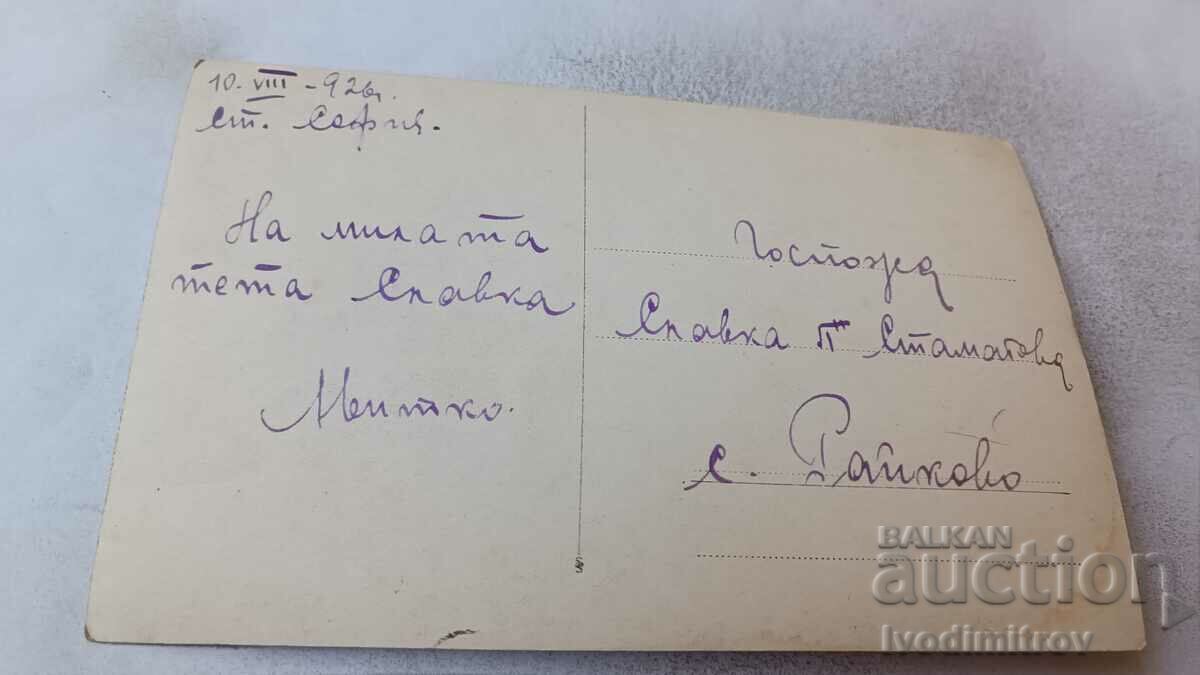 10. VIII - 926г.
ст. София.
На милата
тета Славка
Митко.
Госпожа
Славка П. Стаматова
с. Райково
BALKAN
auction
Ivodimitrov